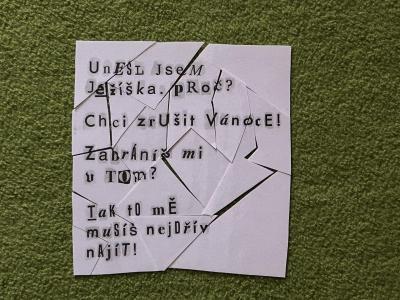 UnESL JseM
Ježíška. pRoč?
Chci zrUšit VánocE!
ZabRÁníš mi
v TOm?
Tak tO mĚ
muSíš nejDřív
nAjíT!